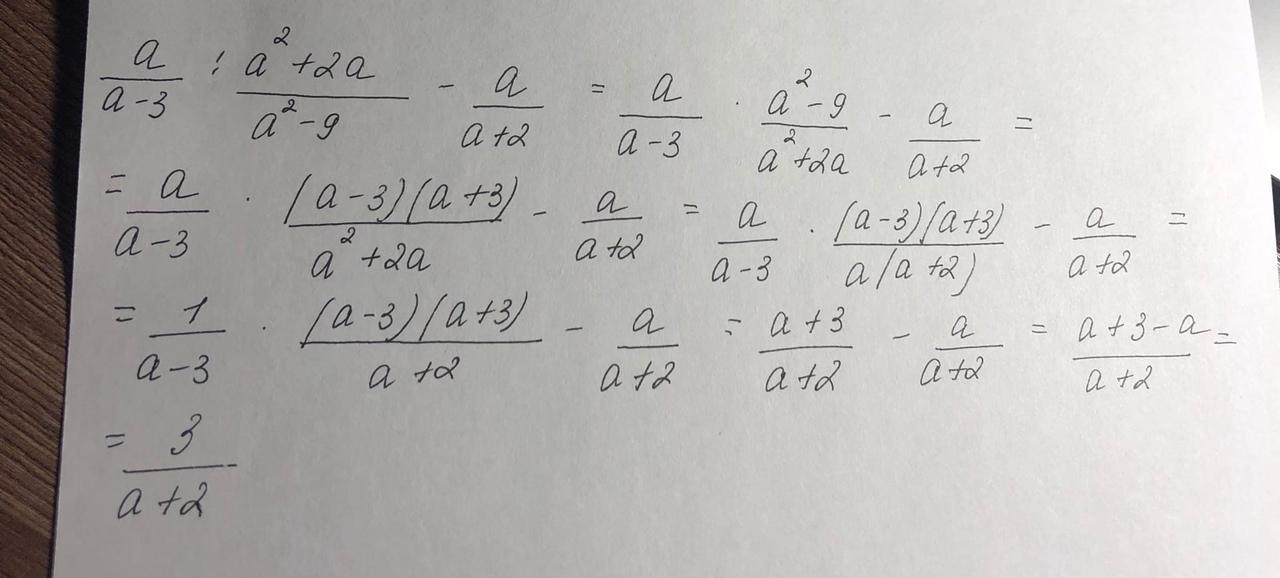 a/(a-3) : (a²+2a)/(a²-9) - a/(a+2) = a/(a-3) · (a²-9)/(a²+2a) - a/(a+2) =
= a/(a-3) · (a-3)(a+3)/(a²+2a) - a/(a+2) = a/(a-3) · (a-3)(a+3)/(a(a+2)) - a/(a+2) =
= 1/(a-3) · (a-3)(a+3)/(a+2) - a/(a+2) = (a+3)/(a+2) - a/(a+2) = (a+3-a)/(a+2) =
= 3/(a+2)